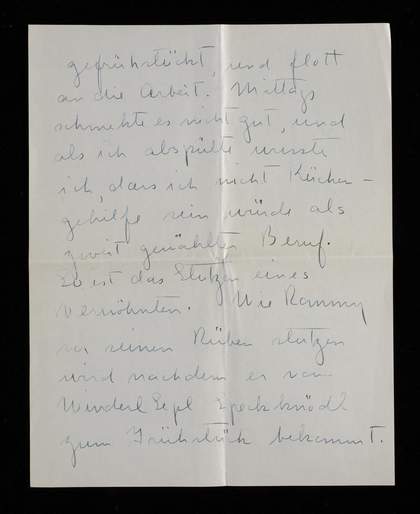 gefrühstückt, und flott
an die Arbeit. Mittags
schmekte es nicht gut, und
als ich abspülte wusste
ich, dass ich nicht Küchen-
gehilfe sein würde als
zweit gewählter Beruf.
So ist das Stutzen eines
verwöhnten. Wie Rammy
vor seinen Rüben stutzen
wird nachdem er vom
Winderl Sepl Speckknödl
zum Frühstük bekommt.